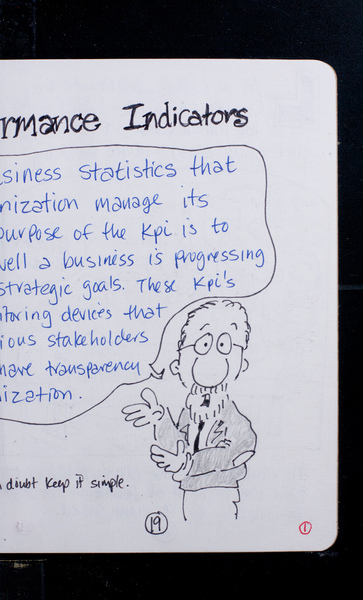 rmance Indicators
siness statistics that
nization manage its
purpose of the Kpi is to
well a business is progressing
strategic goals. These Kpi's
itoring devices that
ious stakeholders
have transparency
ization.
doubt keep it simple.
19
1